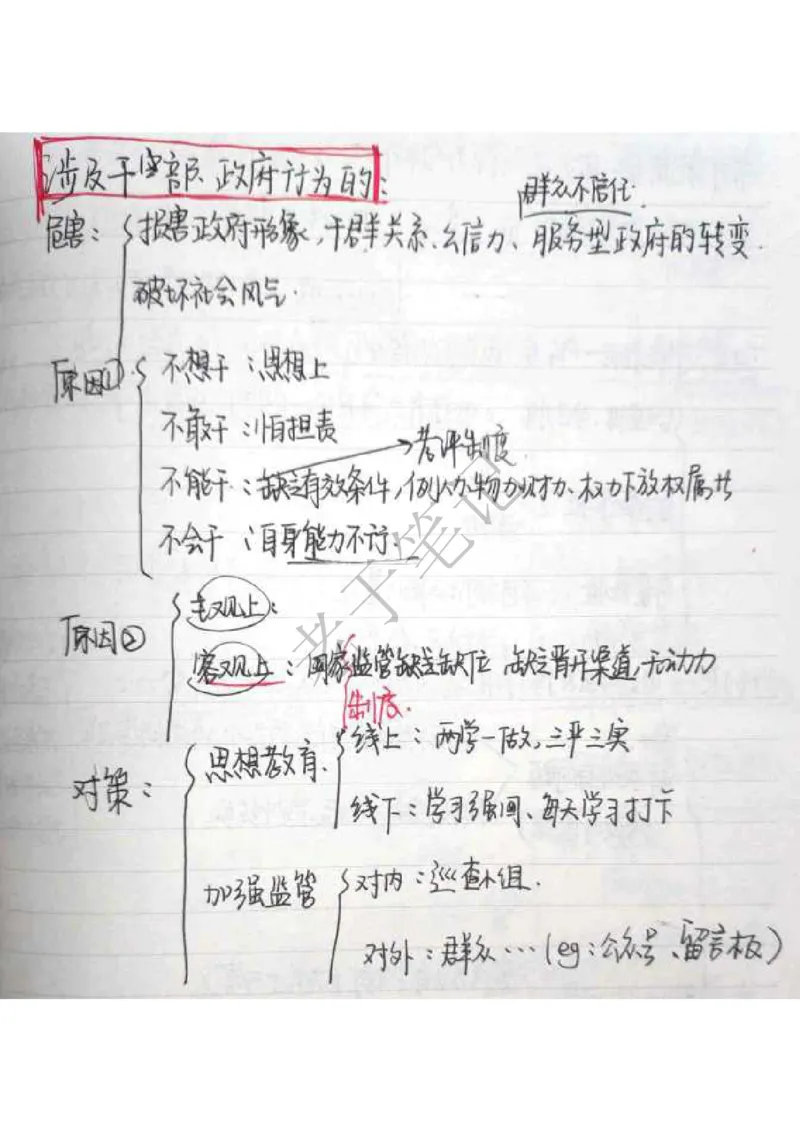 涉及干部、政府行为的:
群众不信任.
危害: 损害政府形象,干群关系、公信力、服务型政府的转变.
破坏社会风气.
原因① 不想干:思想上
不敢干:怕担责
考评制度.
不能干:缺乏有效条件,例人力物力财力、权力下放权属
不会干:自身能力不行.
原因② 主观上:
客观上:国家监管缺失缺位 缺乏晋升渠道,无动力
制度.
对策: 思想教育. 线上:两学一做,三严三实
线下:学习强国、每天学习打卡
加强监管 对内:巡查小组.
对外:群众…(eg:公众号、留言板)
老于笔记